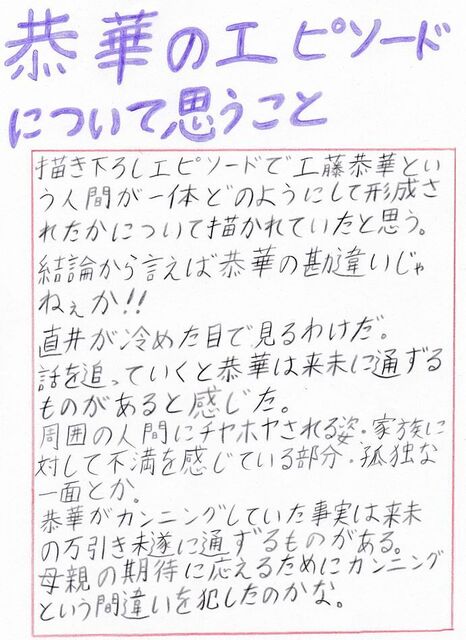 恭華のエピソード
について思うこと
描き下ろしエピソードで工藤恭華とい
う人間が一体どのようにして形成さ
れたかについて描かれていたと思う。
結論から言えば恭華の勘違いじゃ
ねぇか!!
直井が冷めた目で見るわけだ。
話を追っていくと恭華は来未に通ずる
ものがあると感じた。
周囲の人間にチヤホヤされる姿・家族に
対して不満を感じている部分・孤独な
一面とか。
恭華がカンニングしていた事実は来未
の万引き未遂に通ずるものがある。
母親の期待に応えるためにカンニング
という間違いを犯したのかな。